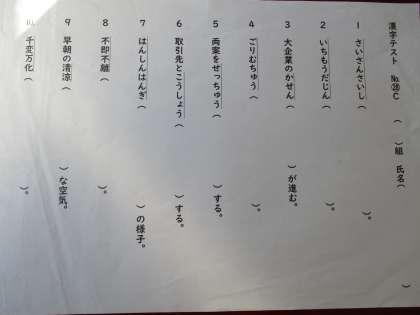 漢字テスト No.㉘C （ ）組 氏名（ ）
1 さいさんさいし（ ）。
2 いちもうだじん（ ）。
3 大企業のかせん（ ）が進む。
4 ごりむちゅう（ ）。
5 両案をせっちゅう（ ）する。
6 取引先とこうしょう（ ）する。
7 はんしんはんぎ（ ）の様子。
8 不即不離（ ）。
9 早朝の清涼（ ）な空気。
10 千変万化（ ）。